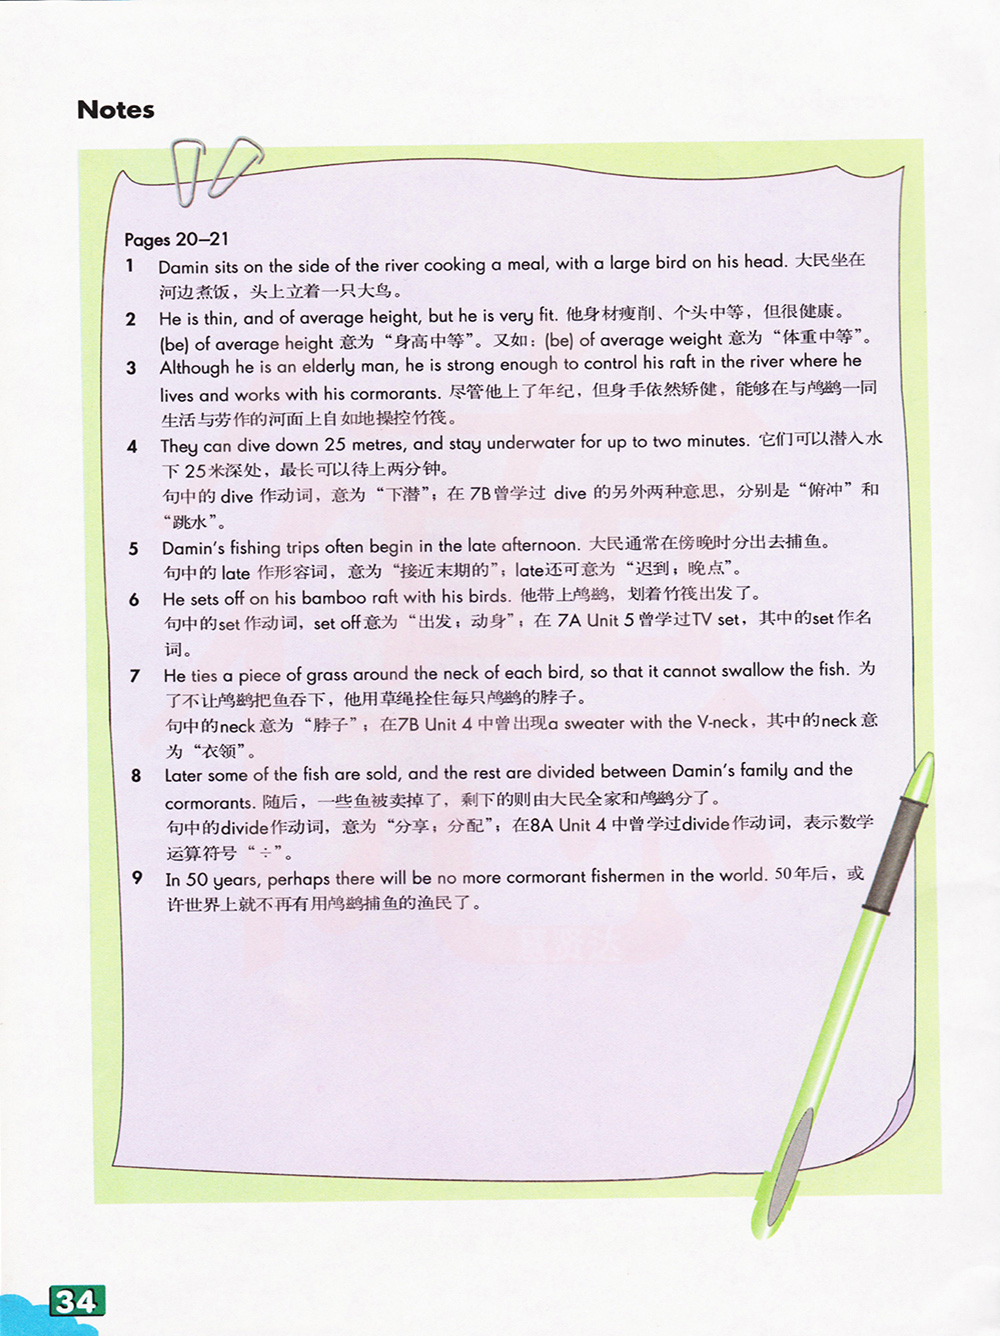 Notes
Pages 20–21
1 Damin sits on the side of the river cooking a meal, with a large bird on his head. 大民坐在
河边煮饭，头上立着一只大鸟。
2 He is thin, and of average height, but he is very fit. 他身材瘦削、个头中等，但很健康。
(be) of average height 意为“身高中等”。又如：(be) of average weight 意为“体重中等”。
3 Although he is an elderly man, he is strong enough to control his raft in the river where he
lives and works with his cormorants. 尽管他上了年纪，但身手依然矫健，能够在与鸬鹚一同
生活与劳作的河面上自如地操控竹筏。
4 They can dive down 25 metres, and stay underwater for up to two minutes. 它们可以潜入水
下 25米深处，最长可以待上两分钟。
句中的 dive 作动词，意为“下潜”；在 7B曾学过 dive 的另外两种意思，分别是“俯冲”和
“跳水”。
5 Damin's fishing trips often begin in the late afternoon. 大民通常在傍晚时分出去捕鱼。
句中的 late 作形容词，意为“接近末期的”；late还可意为“迟到；晚点”。
6 He sets off on his bamboo raft with his birds. 他带上鸬鹚，划着竹筏出发了。
句中的set作动词，set off意为“出发；动身”；在 7A Unit 5曾学过TV set，其中的set作名
词。
7 He ties a piece of grass around the neck of each bird, so that it cannot swallow the fish. 为
了不让鸬鹚把鱼吞下，他用草绳拴住每只鸬鹚的脖子。
句中的neck意为“脖子”；在7B Unit 4 中曾出现a sweater with the V-neck，其中的neck意
为“衣领”。
8 Later some of the fish are sold, and the rest are divided between Damin's family and the
cormorants. 随后，一些鱼被卖掉了，剩下的则由大民全家和鸬鹚分了。
句中的divide作动词，意为“分享；分配”；在8A Unit 4 中曾学过divide作动词，表示数学
运算符号“÷”。
9 In 50 years, perhaps there will be no more cormorant fishermen in the world. 50年后，或
许世界上就不再有用鸬鹚捕鱼的渔民了。
34